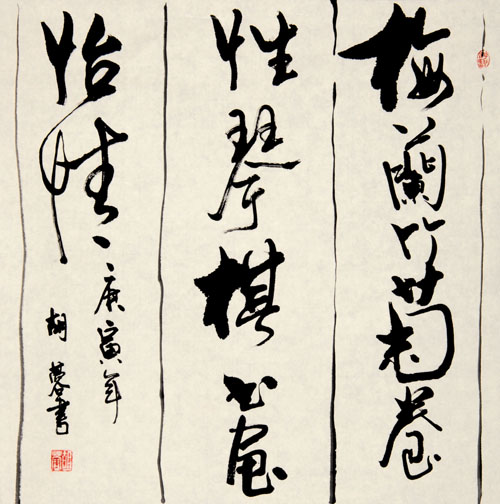 梅蘭竹菊養
性琴棋书畫
怡情
庚寅年
胡蓉書